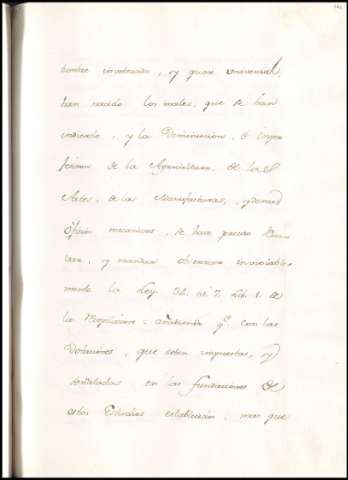 hombre inventando, y quasi universal,
han nacido los males, que se han
, y la Diminucion, é imper
feccion de la Agricultura, de las
Artes, de las Manufacturas, y demas
Oficios mecanicos, se hace preciso
, y mandar observar inviolable
mente la Ley 34. tit.º 7. Lib. 1. de
la Recopilacion: añadiendo q.e con las
Dotaciones, que esten impuestas, y
señaladas en las fundaciones de
estos Estudios establecidos, mas que